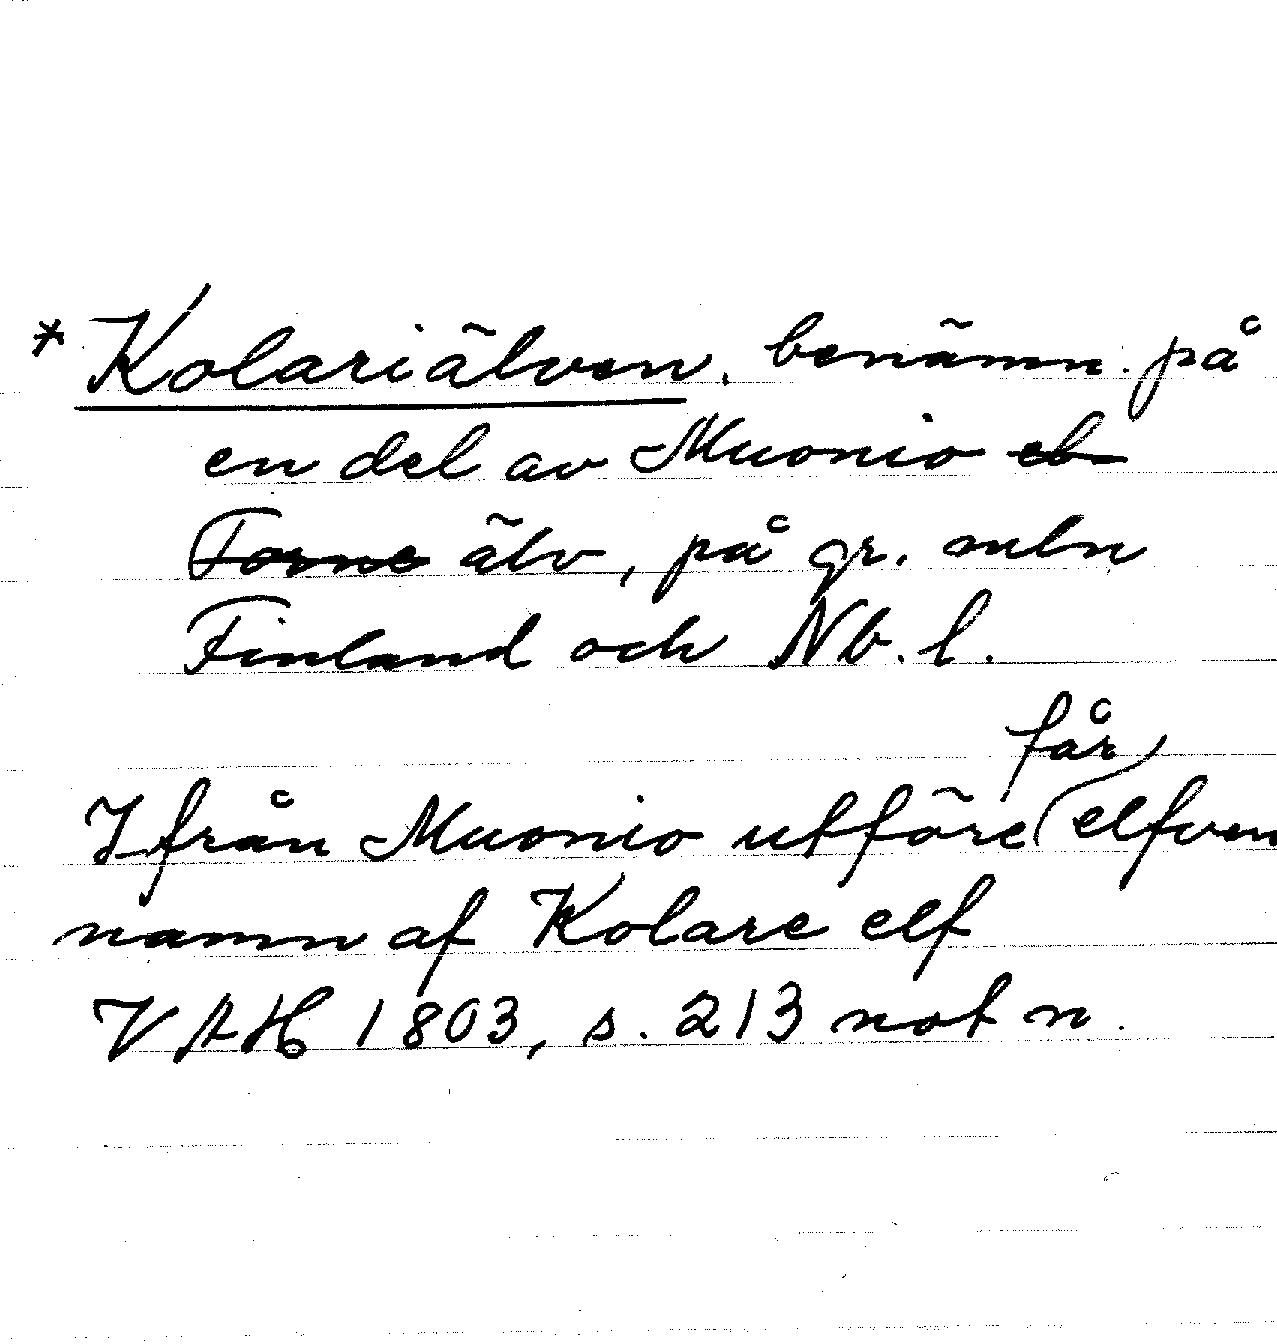 * Kolariälven. benämn. på
en del av Muonio el.
Torne älv, på gr. mln
Finland och Nb. l.
får
Ifrån Muonio utföre elfven
namn af Kolare elf
VAH 1803, s. 213 not n.